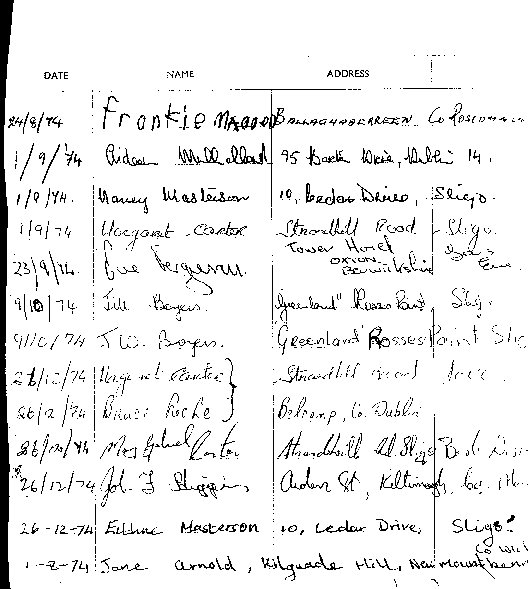 DATE NAME ADDRESS
24/8/74 Frankie BALLAGHADERREEN Co Roscommon
1/9/74 Aideen Mulholland 95 Drive, Dublin 14.
1/9/74. Nancy Masterson 10, Cedar Drive, Sligo.
1/9/74 Margaret Carter Strandhill Road Sligo
Tower Hotel
23/9/74. Eve Ferguson. OXTON
Berwickshire
9/10/74 Jill Boyers. Greenland" Rosses Point, Sligo.
9/10/74 J.W. Boyers. Greenland Rosses Point Slig
26/12/74 Margaret Carter Strandhill
26/12/74 Roche Belcamp, Co. Dublin
26/12/74 Mrs Carter Strandhill Rd. Sligo
26/12/74 John F Higgins, Aiden St, Kiltimagh, Co.
26-12-74 Eithne Masterson 10, Cedar Drive, Sligo.
Co Wick
1-2-74 Jane Arnold, Kilquade Hill,